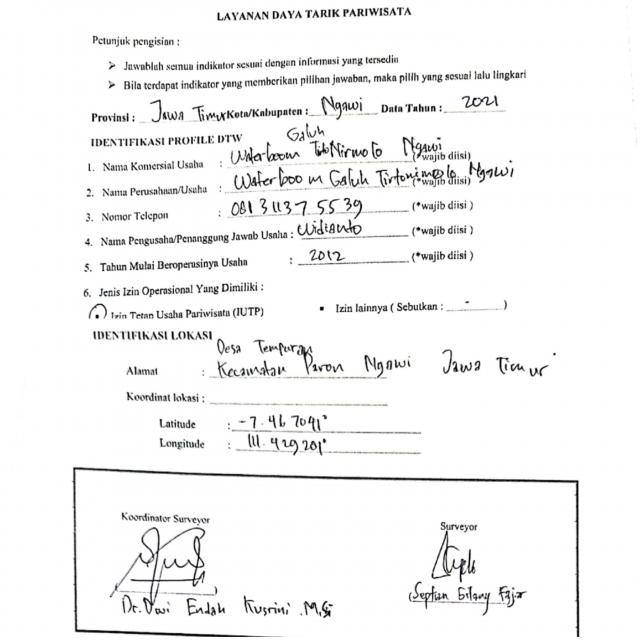 LAYANAN DAYA TARIK PARIWISATA
Petunjuk pengisian :
➢ Jawablah semua indikator sesuai dengan informasi yang tersedia
➢ Bila terdapat indikator yang memberikan pilihan jawaban, maka pilih yang sesuai lalu lingkari
Provinsi : Jawa Timur Kota/Kabupaten : Ngawi Data Tahun : 2021
IDENTIFIKASI PROFILE DTW
Galuh
1. Nama Komersial Usaha : Waterboom Nirmolo Ngawi (*wajib diisi)
2. Nama Perusahaan/Usaha : Waterboom Galuh Tirtonirmolo Ngawi (*wajib diisi)
3. Nomor Telepon : 081 31137 5539 (*wajib diisi )
4. Nama Pengusaha/Penanggung Jawab Usaha : Widianto (*wajib diisi )
5. Tahun Mulai Beroperasinya Usaha : 2012 (*wajib diisi )
6. Jenis Izin Operasional Yang Dimiliki :
Izin Tetap Usaha Pariwisata (IUTP) ▪ Izin lainnya ( Sebutkan : - )
IDENTIFIKASI LOKASI
Desa Tempuran
Alamat : Kecamatan Paron Ngawi Jawa Timur
Koordinat lokasi :
Latitude : -7.467041°
Longitude : 111.429201°
Koordinator Surveyor
Surveyor
Dr. Dwi Endah Kusrini .M.Si
(Septian Gilang Fajar